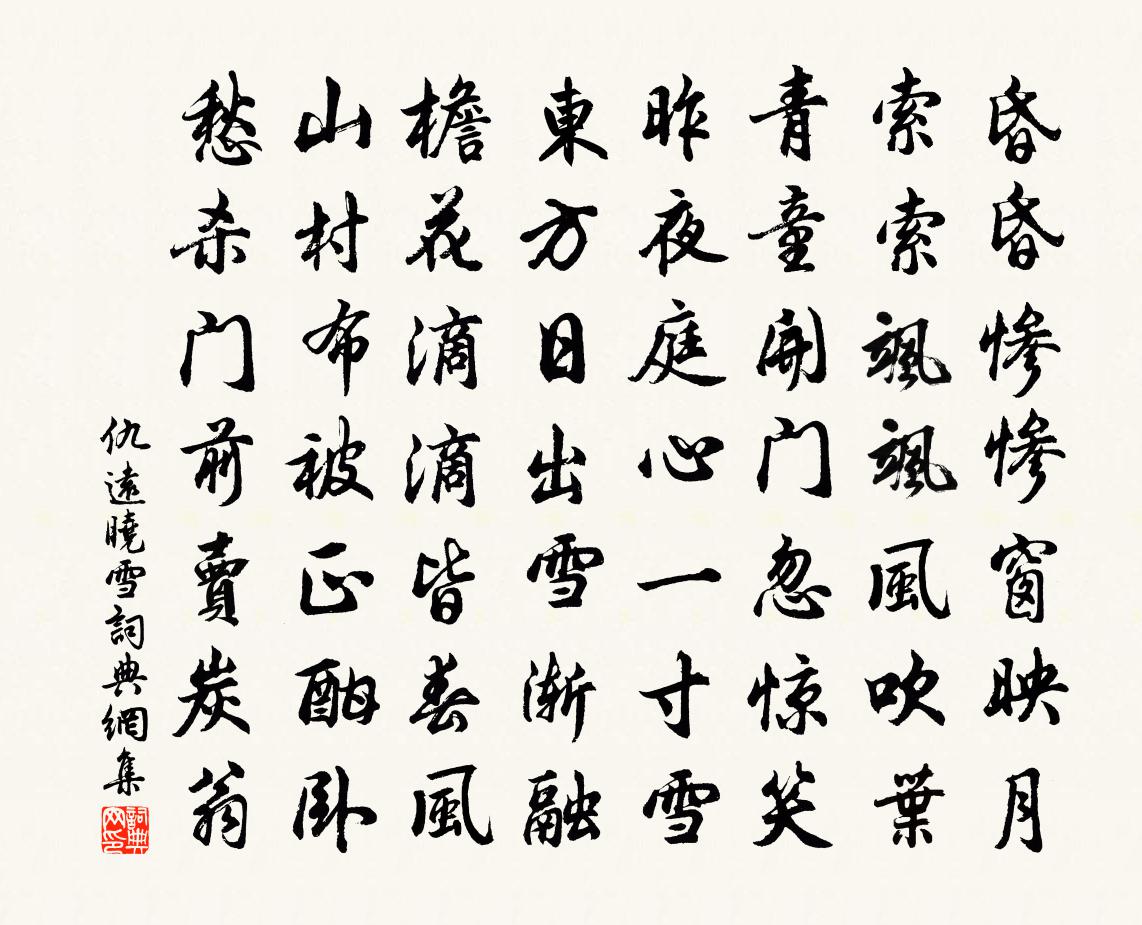 昏昏惨惨窗映月
索索颯颯風吹葉
青童開门忽惊笑
昨夜庭心一寸雪
東方日出雪漸融
檐花滴滴皆春風
山村布被正酣卧
愁杀门前賣炭翁
仇遠曉雪詞典網集
詞典网印